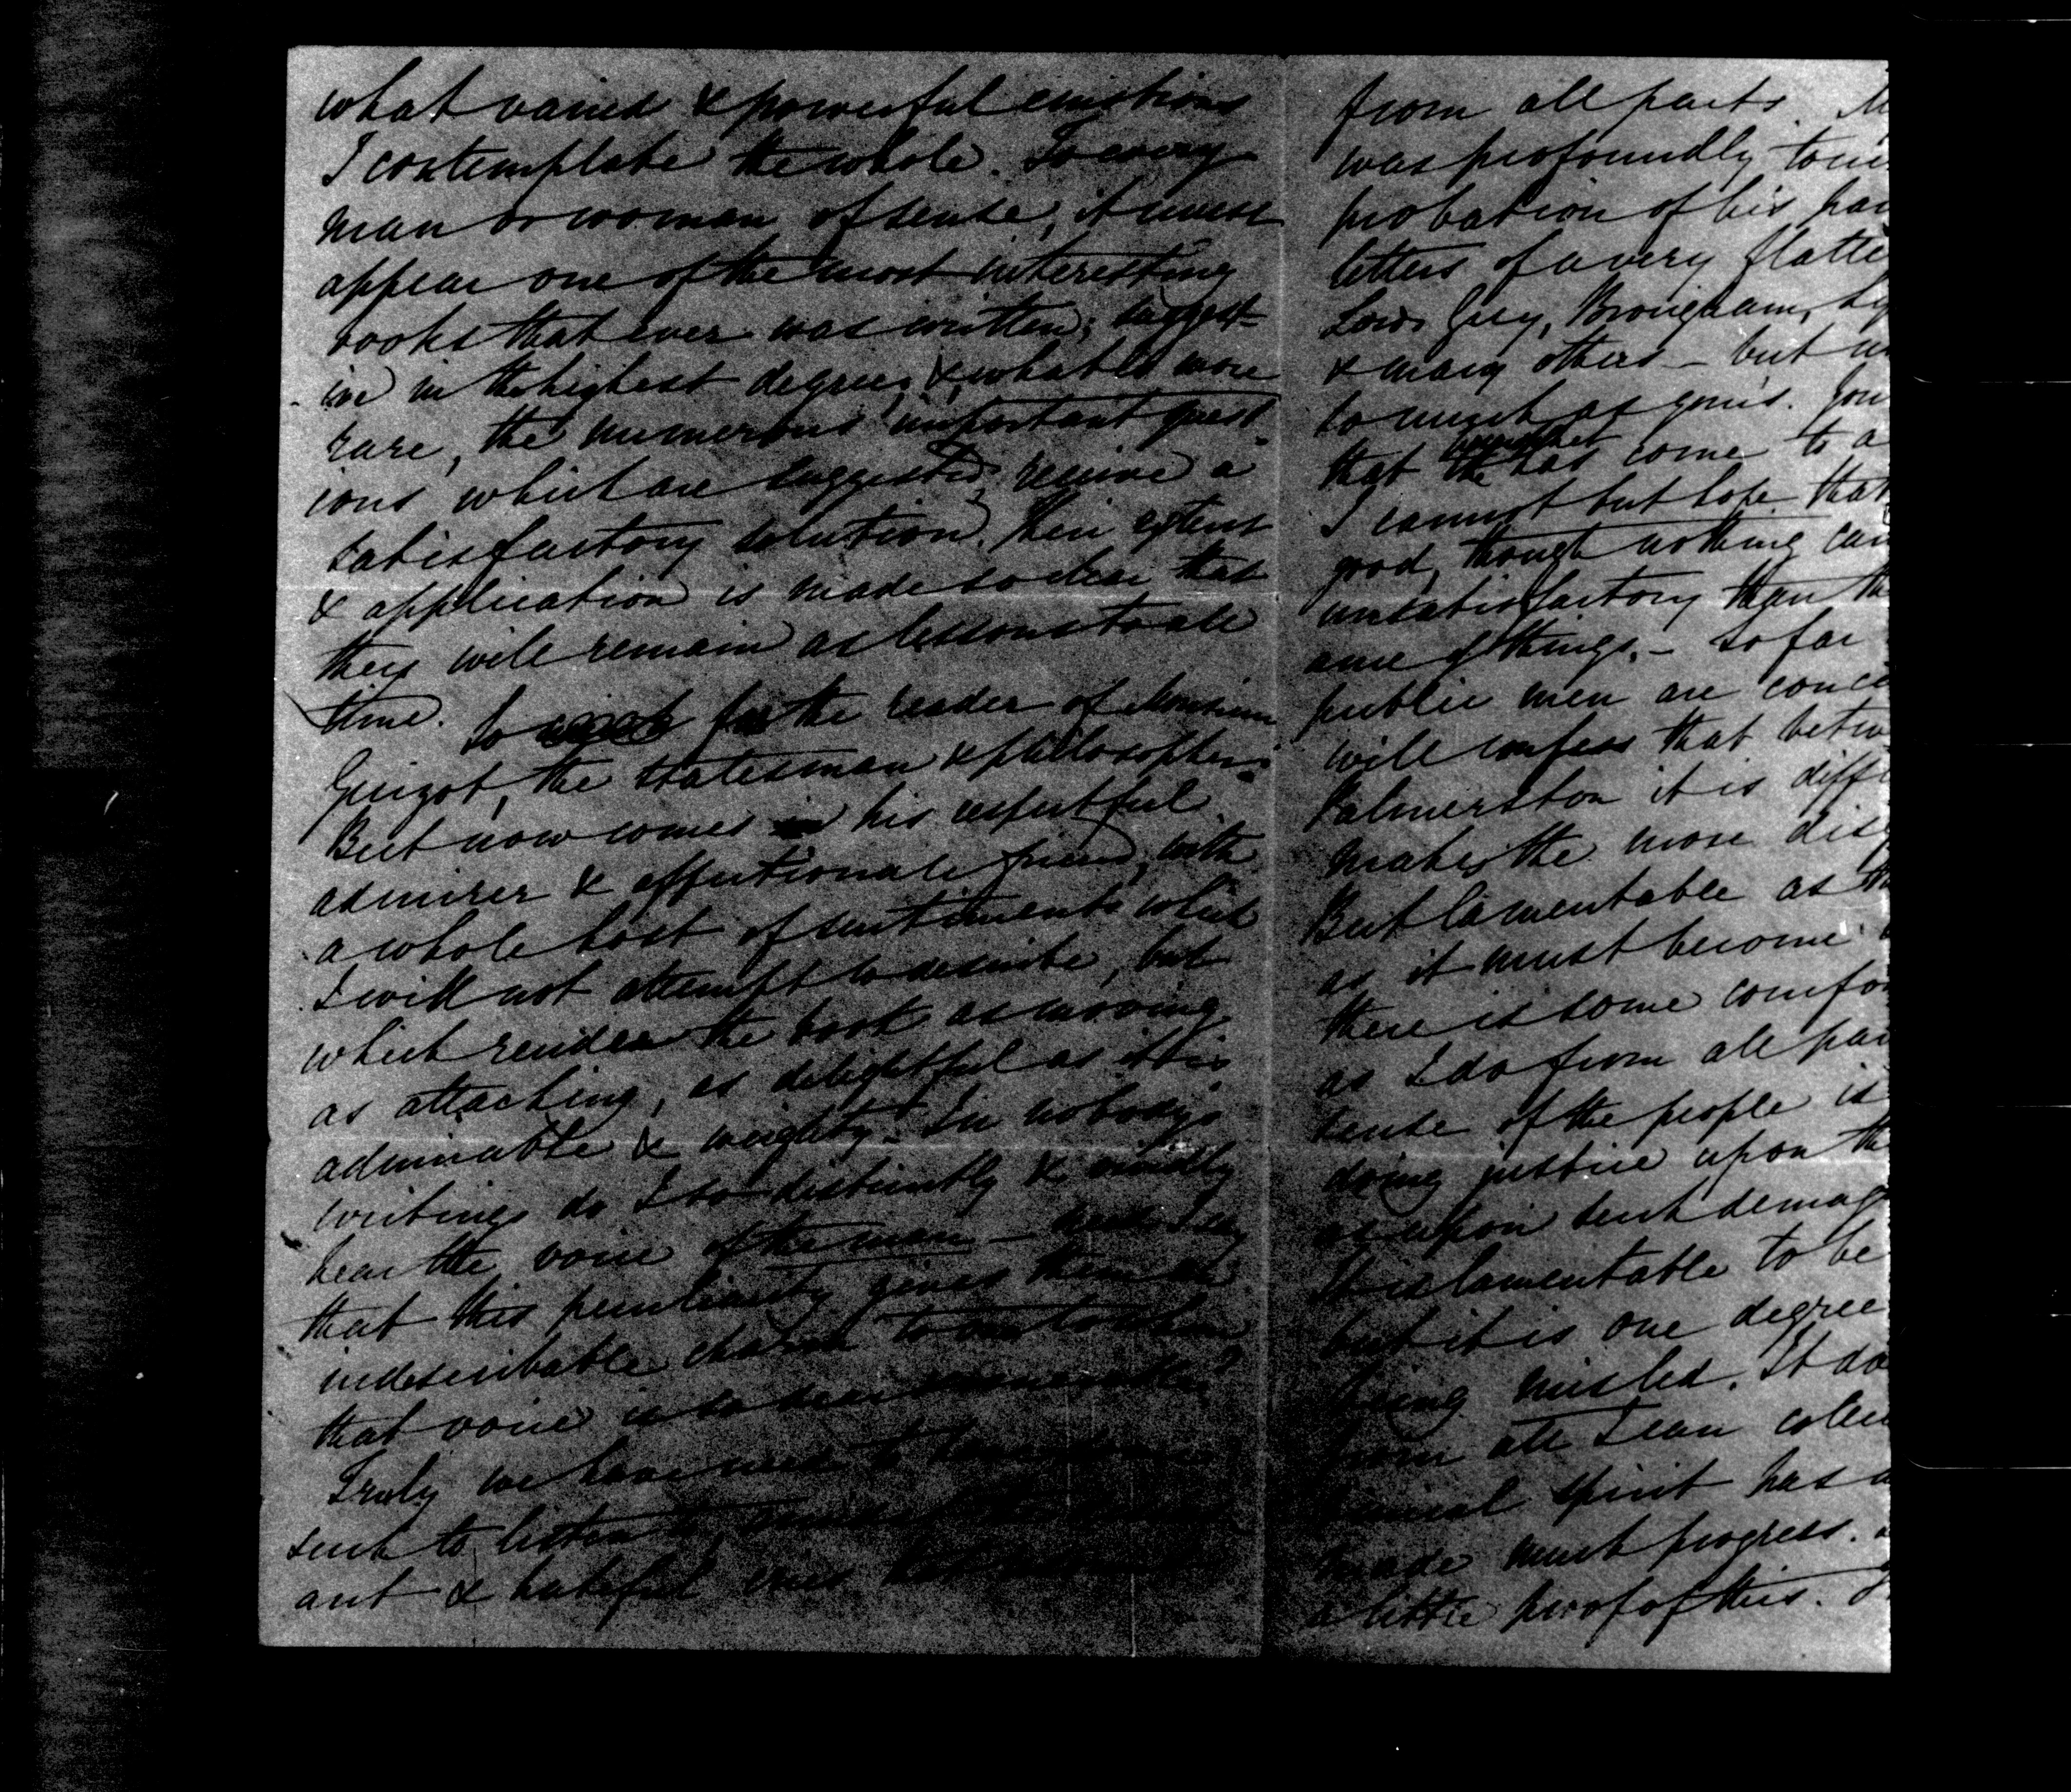 what varied & powerful emotions
I contemplate the whole. To every
man or woman of sense, it must
appear one of the most interesting
books that ever was written; suggest-
ive in the highest degree, & what is more
rare, the numerous important quest-
ions which are suggested, receive a
satisfactory solution. Their extent
& application is made so clear that
they will remain as lessons to all
time.
So much for the reader of Monsieur
Guizot, the statesman & philosopher.
But now comes his respectful
admirer & affectionate friend, with
a whole host of sentiments which
I will not attempt to describe, but
which render the book as moving
as attaching, as delightful as it is
admirable & weighty. In nobody's
writings do I so distinctly & vividly
hear the voice of the man – need I say
that this peculiarity gives them an
indescribable charm to one to whom
that voice is so dear
Truly we have need to have some
such to listen to,
ant & hateful
from all parts. M
was profoundly touc
probation of his pa
letters of a very flatte
Lords Grey, Brougham, Ly
& many others – but no
so much as yours. You
that has come to a
I cannot but hope that
good, though nothing can
unsatisfactory than th
ance of things. – So far
public men are conce
will confess that betwe
Palmerston it is diffi
makes the more dis
But lamentable as th
as it must become
there is some comfo
as I do from all par
sense of the people is
doing justice upon th
as upon such demag
It is lamentable to be
but it is one degree
being misled. It do
from all I can collec
spirit has n
made much progress.
a little proof of this.